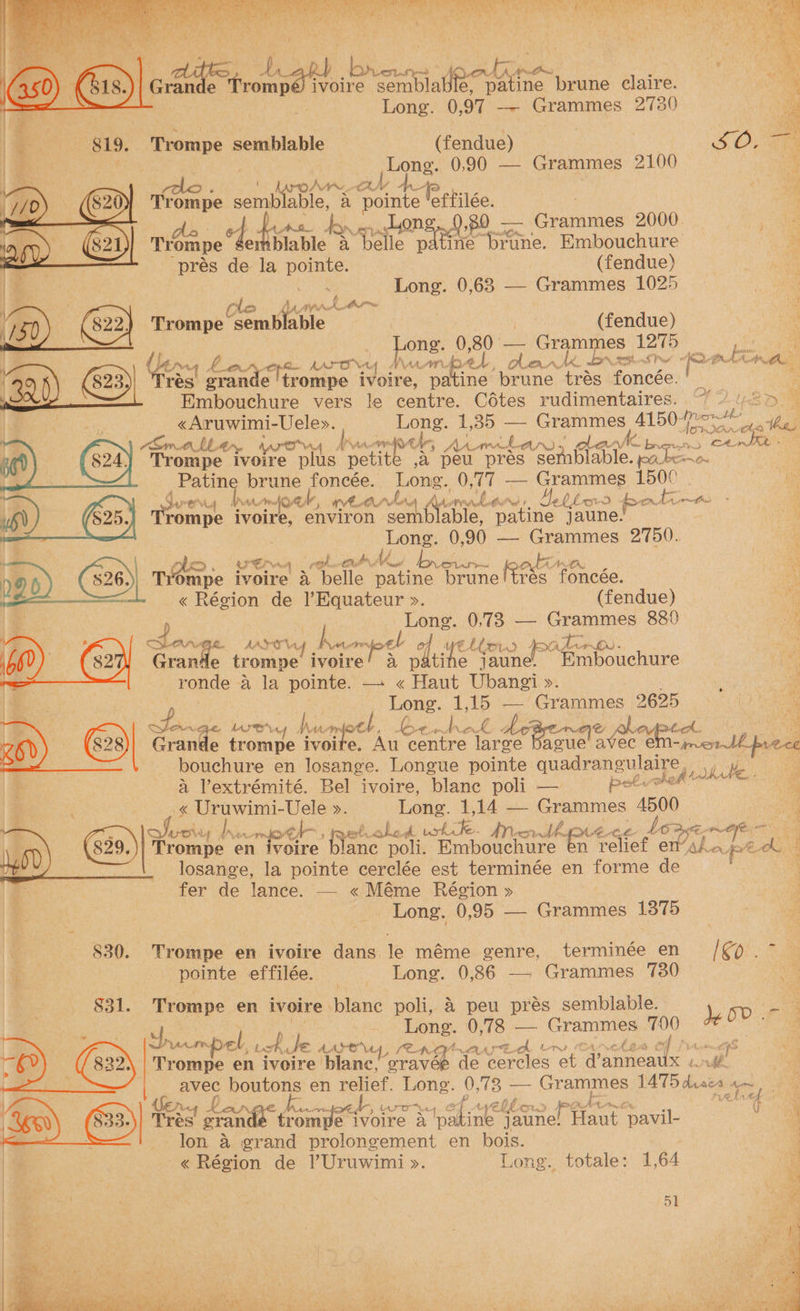 ditto, light brown patina
350 818. Grande Trompe ivoire semblable, patine brune claire.
Long. 0,97 — Grammes 2730
819. Trompe semblable (fendue) 50. -
Long. 0,90 — Grammes 2100
do.
110 820 Trompe semblable, à pointe effilée.
Long. 0,80 — Grammes 2000
do of fine brown
821 Trompe semblable à belle patine brune. Embouchure
près de la pointe. (fendue)
Long. 0,63 — Grammes 1025
do similar
150 822 Trompe semblable (fendue)
Long. 0,80 — Grammes 1275
Very large ivory trumpet, dark brown patina
823. Très grande trompe ivoire, patine brune très foncée.
Embouchure vers le centre. Côtes rudimentaires.
«Aruwimi-Uele». Long. 1,35 — Grammes 4150
Smaller ivory trumpet, similar, dark brown
824. Trompe ivoire plus petite, à peu près semblable. patina
Patine brune foncée. Long. 0,77 — Grammes 1500
Ivory trumpet, nearly similar, yellow patina
825. Trompe ivoire, environ semblable, patine jaune.
Long. 0,90 — Grammes 2750.
do. very dark brown patina
826. Trompe ivoire à belle patine brune très foncée.
« Région de l'Equateur ». (fendue)
Long. 0,73 — Grammes 880
Large ivory trumpet of yellow patina.
827 Grande trompe ivoire à patine jaune. Embouchure
ronde à la pointe. — « Haut Ubangi ».
Long. 1,15 — Grammes 2625
Large ivory trumpet, central lozenge shaped
828 Grande trompe ivoire. Au centre large bague avec em- mouthpiece
bouchure en losange. Longue pointe quadrangulaire
à l'extrémité. Bel ivoire, blanc poli — polished white
« Uruwimi-Uele ». Long. 1,14 — Grammes 4500
Ivory trumpet, polished white. Mouthpiece lozenge -
829. Trompe en ivoire blanc poli. Embouchure en relief en shaped
losange, la pointe cerclée est terminée en forme de
fer de lance. — « Même Région »
Long. 0,95 — Grammes 1375
830. Trompe en ivoire dans le même genre, terminée en 160. -
pointe effilée. Long. 0,86 — Grammes 730
831. Trompe en ivoire blanc poli, à peu près semblable.
Long. 0,78 — Grammes 700
Trumpet, white ivory, engraved in circles of rings
832. Trompe en ivoire blanc, gravée de cercles et d'anneaux
avec boutons en relief. Long. 0,73 — Grammes 1475 discs in relief
Very large trumpet, ivory of yellow patina
833. Très grande trompe ivoire à patine jaune. Haut pavil-
lon à grand prolongement en bois.
« Région de l'Uruwimi ». Long. totale: 1,64
51